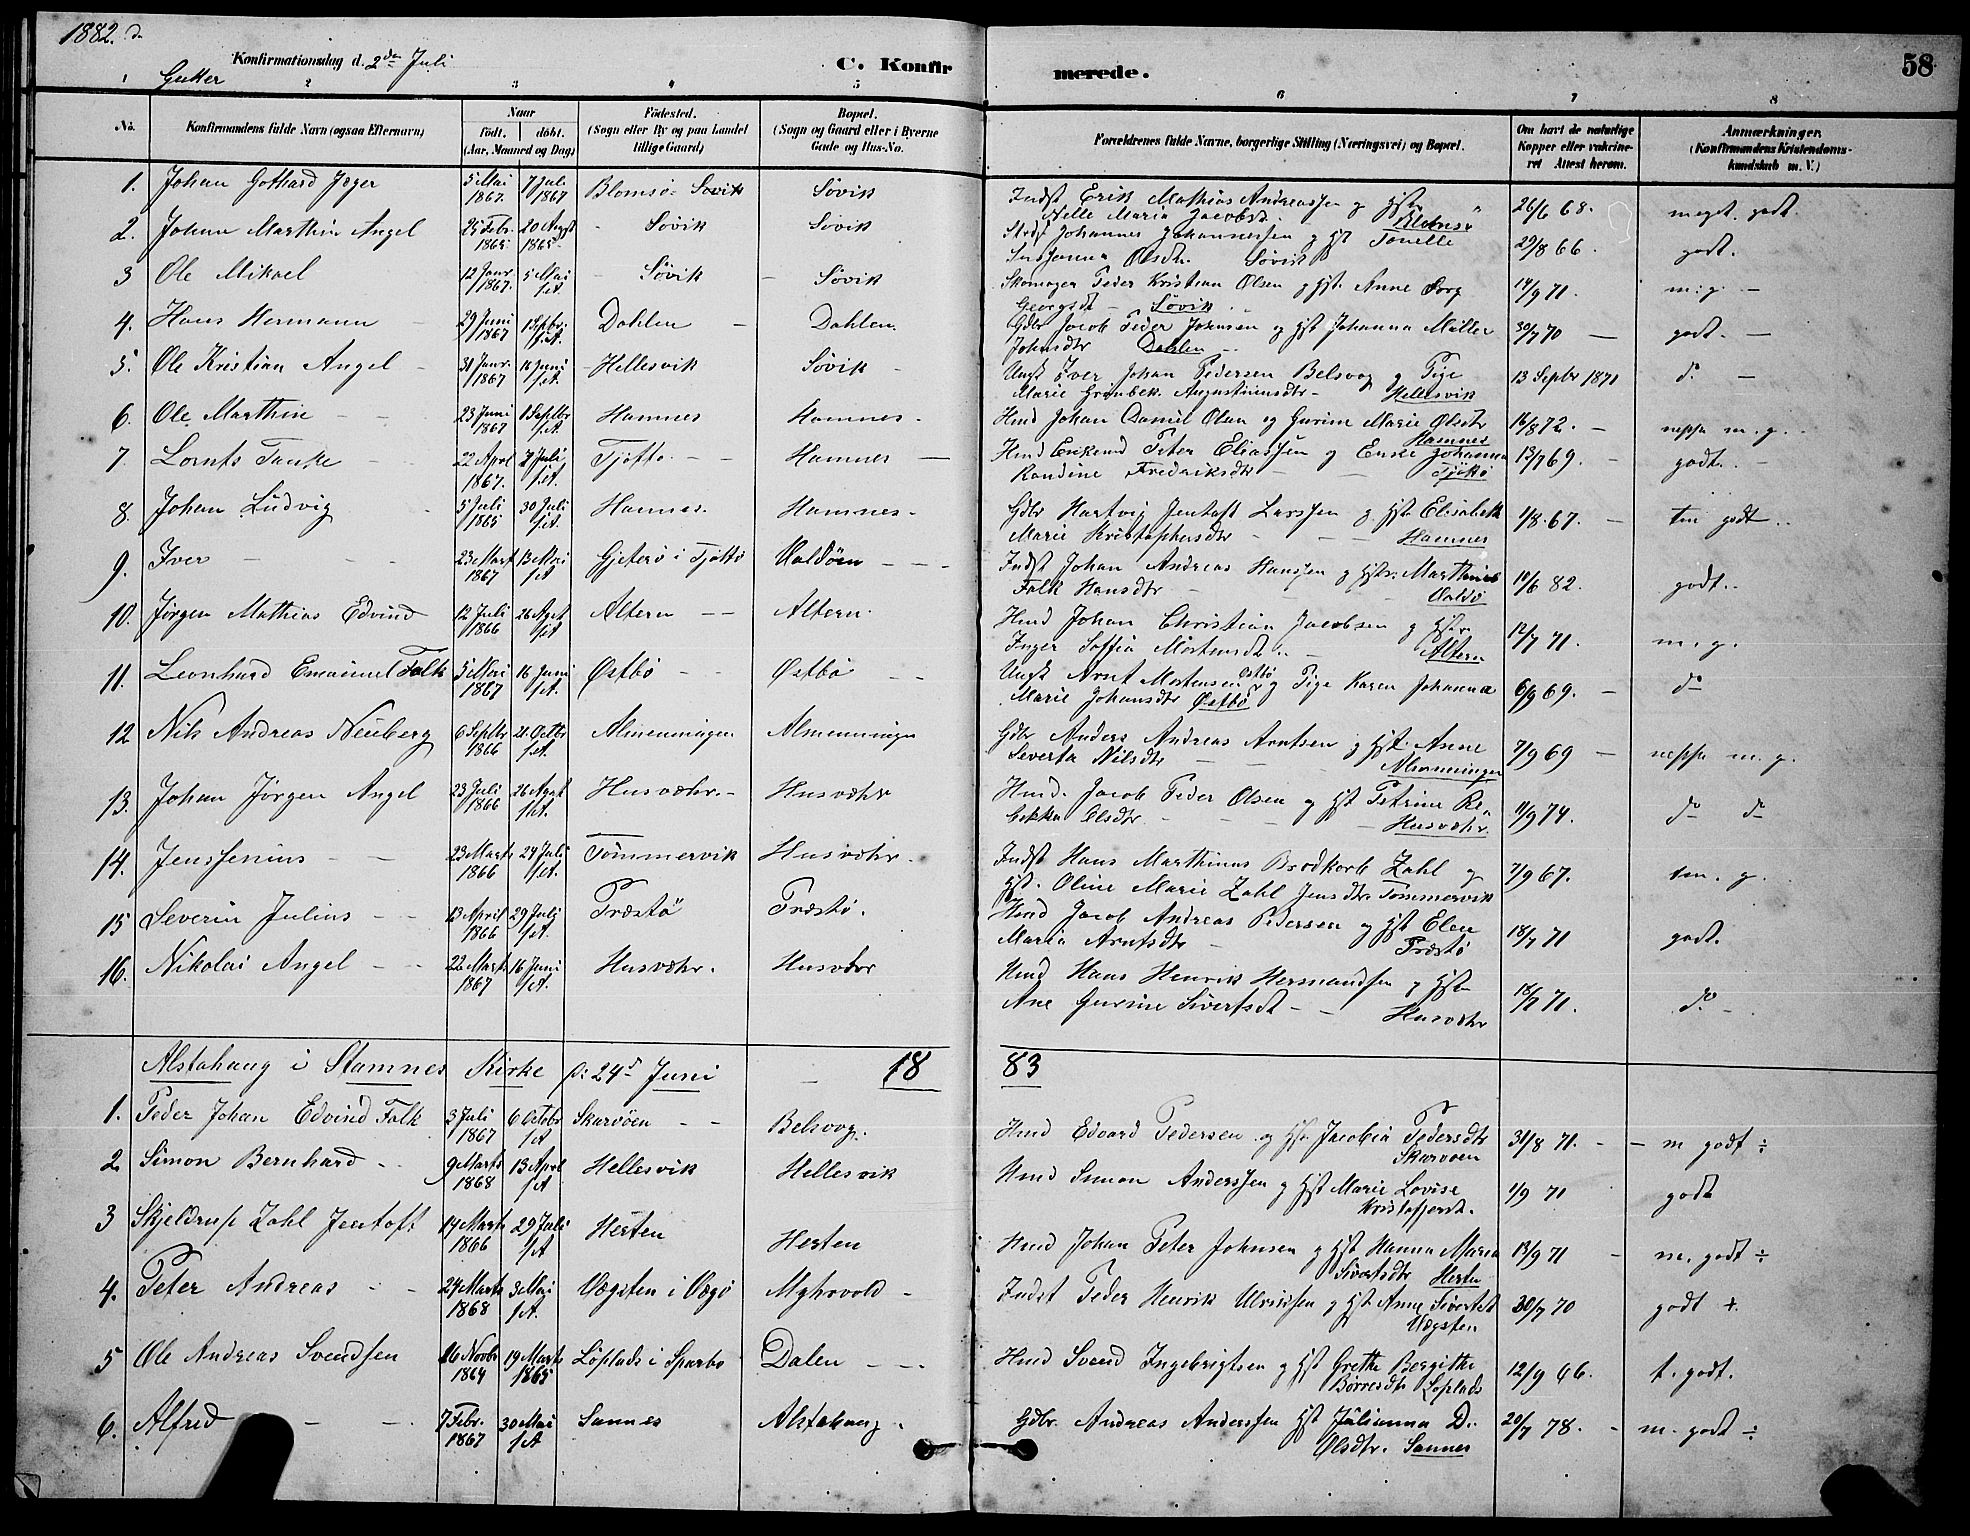 1882.
Konfirmationsdag d. 2den Juli
C. Konfir merede. 58
Gutter
1 2 3 4 5 6 7 8
No. Konfirmandens fulde Navn (ogsaa Efternavn) Naar født. døbt. (Aar, Maaned og Dag) Fødested. (Sogn eller By og paa Landet tillige Gaard) Bopæl. (Sogn og Gaard eller i Byerne Gade og Hus-No. Forældrenes fulde Navne, borgerlige Stilling (Næringsvei) og Bopæl. Om havt de naturlige Kopper eller vakcineret Attest herom. Anmærkninger. (Konfirmandens Kristendomskundskab m. V.)
1. Johan Gotthard Jæger 5 Mai 1867. 7 Juli 1867 Blomsø Søvik Søvik Indst Erik Mathias Andreassen og Hst Nelle Maria Jacobsd. Blomsö 26/6 68. meget godt.
2. Johan Marthin Angel 25 Febr. 1865 20 Augst 1865 Søvik Søvik Johannes Johannessen og Hst Tonelle Susjanna Olsdtr. Søvik 29/8 66. godt.
3 Ole Mikael 12 Janr. 1867. 5 Mai s.A. Søvik Søvik Skomager Peder Kristian Olsen og Hst. Anne Georgsdt - Søvik 14/9 71. m.g. -
4. Hans Hermann 29 Juni 1867 1 Septbr. s.A. Dahlen Dahlen. Gdbr Jacob Peder Johnsen og Hst Johanna Müller Johnsdtr Dahlen 30/7 70 - godt. -
5. Ole Kristian Angel 31 Janr. 1867 16 Juni s.A. Hellesvik Søvik Ungk Iver Johan Pedersen Belsvog og Pige Marie Grønbek Augustinusdtr - Hellesvik 13 Septbr 1871 do -
6. Ole Marthin 23 Juni 1867 1 Septbr s.A. Hamnes Hamnes. Hmd Johan Daniel Olsen og Gurine Marie Olsdtr Hamnes 16/8 72. - neppe m.g.
7. Lornts Tanke 22 Aprl 1867. 7 Juli s.A. Tjøtta Hamnes Hmd Enkemd Peter Eliassen og Enke Johanna Randine Fredriksdtr - Tjøttø 13/7 69. - godt. -
8. Johan Ludvig 5 Juli 1865 30 Juli s.A. Hamnes. Hamnes. Gdbr Hartvig Jentoft Larssen og Hst Elisabeth Marie Kristophersdtr - Hamnes 1/8 67. - tm godt ..
9. Iver 23 Mart 1867 13 Mai s.A. Gjeterø i Tjøttø Valdöen Indst Johan Andreas Hanssen og Hstr. Marthine Falk Hansdtr Valdø 10/6 82. godt.
10. Jørgen Mathias Edvind 12 Juli 1866 26 Agst s.A. Altern Altern. Hmd Johan Christian Jacobsen og Hstr. Inger Soffia Mortensdt. - Altern 12/7 71. m.g.
11. Leonhard Emanuel Falk 5 Mai 1867 16 Juni s.A. Østbö Østbø Ungk Arnt Mortensen Østbø og Pige Karen Johanna Marie Johansdtr Østbø 6/9 69. - do
12 Nils Andreas Neuberg 6 Septbr 1866 21 Octbr s.A. Almenningen Almenningen Gdbr Anders Andreas Arntsen og Hst. Anne Severta Nilsdtr Almenningen 7/9 69 - neppe m.g.
13. Johan Jørgen Angel 23 Juli 1866 26 Agst s.A. Husvæhr. Husvæhr Hmd. Jacob Peder Olsen og Hst Petrine Rebekka Olsdtr. Husvæhr. 11/9 74. do do
14. Jens Jenius 23 Marts 1866 24 Juli s.A. Tømmervik Husvæhr. Indst Hans Marthinus Brodkorb Zahl og Hst. Oline Marie Zahl Jensdtr. Tømmervik 7/9 67. tm. g.
15 Severin Julius 13 April 1866 29 Juli s.A. Præstö Præstø. Hmd Jacob Andreas Pedersen og Hst Elen Maria Arntsdtr Præstø 18/7 71 godt.
16. Nikolai Angel 22 Marts 1867 16 Juni s.A. Husvæhr. Husvær Hmd Hans Henrik Hermandsen og Hst Ane Gurine Sivertsdt - Husvæhr 18/7 71. do -
Alstahaug i Stamnes Kirke p. 24d Juni 18 83
1. Peder Johan Edvind Falk 3 Juli 1867 6 Octobr s.A Skarvöen Belsvog. Hmd Edvard Pedersen og Hst Jacobia Pedersdtr Skarvøen 31/8 71. - m godt ÷
2. Simon Bernhard 9 Marts 1868 13 Aprl s.A Hellesvik Hellesvik Hmd Simon Anderssen og Hst Marie Lovise Kristoffersdt. 1/9 71 godt
3 Skjeldrup Zahl Jentoft 17 Marts 1866 29 Juli s.A Hesten Hesten Hmd Johan Peter Johnsen og Hst Hanna Maria Sivertsdtr Hesten 13/9 71 - m. godt ÷
4. Peter Andreas 24 Marts 1868 3 Mai s.A. Vægsten i Vægø Myhrvold Indst Peder Henrik Ulriksen og Hst Anne Sivertsd Vægsten 30/7 70 godt +
5 Ole Andreas Svendsen 16 Novbr 1864 19 Marts 1865 Löplads i Sparbo Dalen Hmd Svend Ingebrigtsen og Hst Grethe Bergitha Børresdtr Løplads 12/9 66. t. godt.
6. Alfred 7 Febr. 1867 30 Mai s.A Sannes Alstahaug. Gdbr. Andreas Anderssen Hst Julianna D. Olsdtr. Sannes 20/7 78. - m. godt ÷